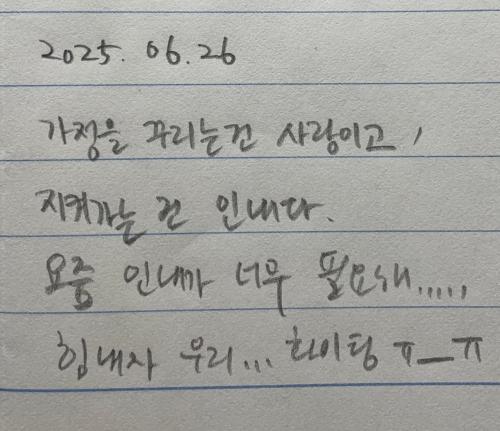 2025. 06. 26
가정을 꾸리는건 사랑이고,
지켜가는 건 인내다.
요즘 인내가 너무 필요해.....
힘내자 우리... 화이팅 ㅠ_ㅠ